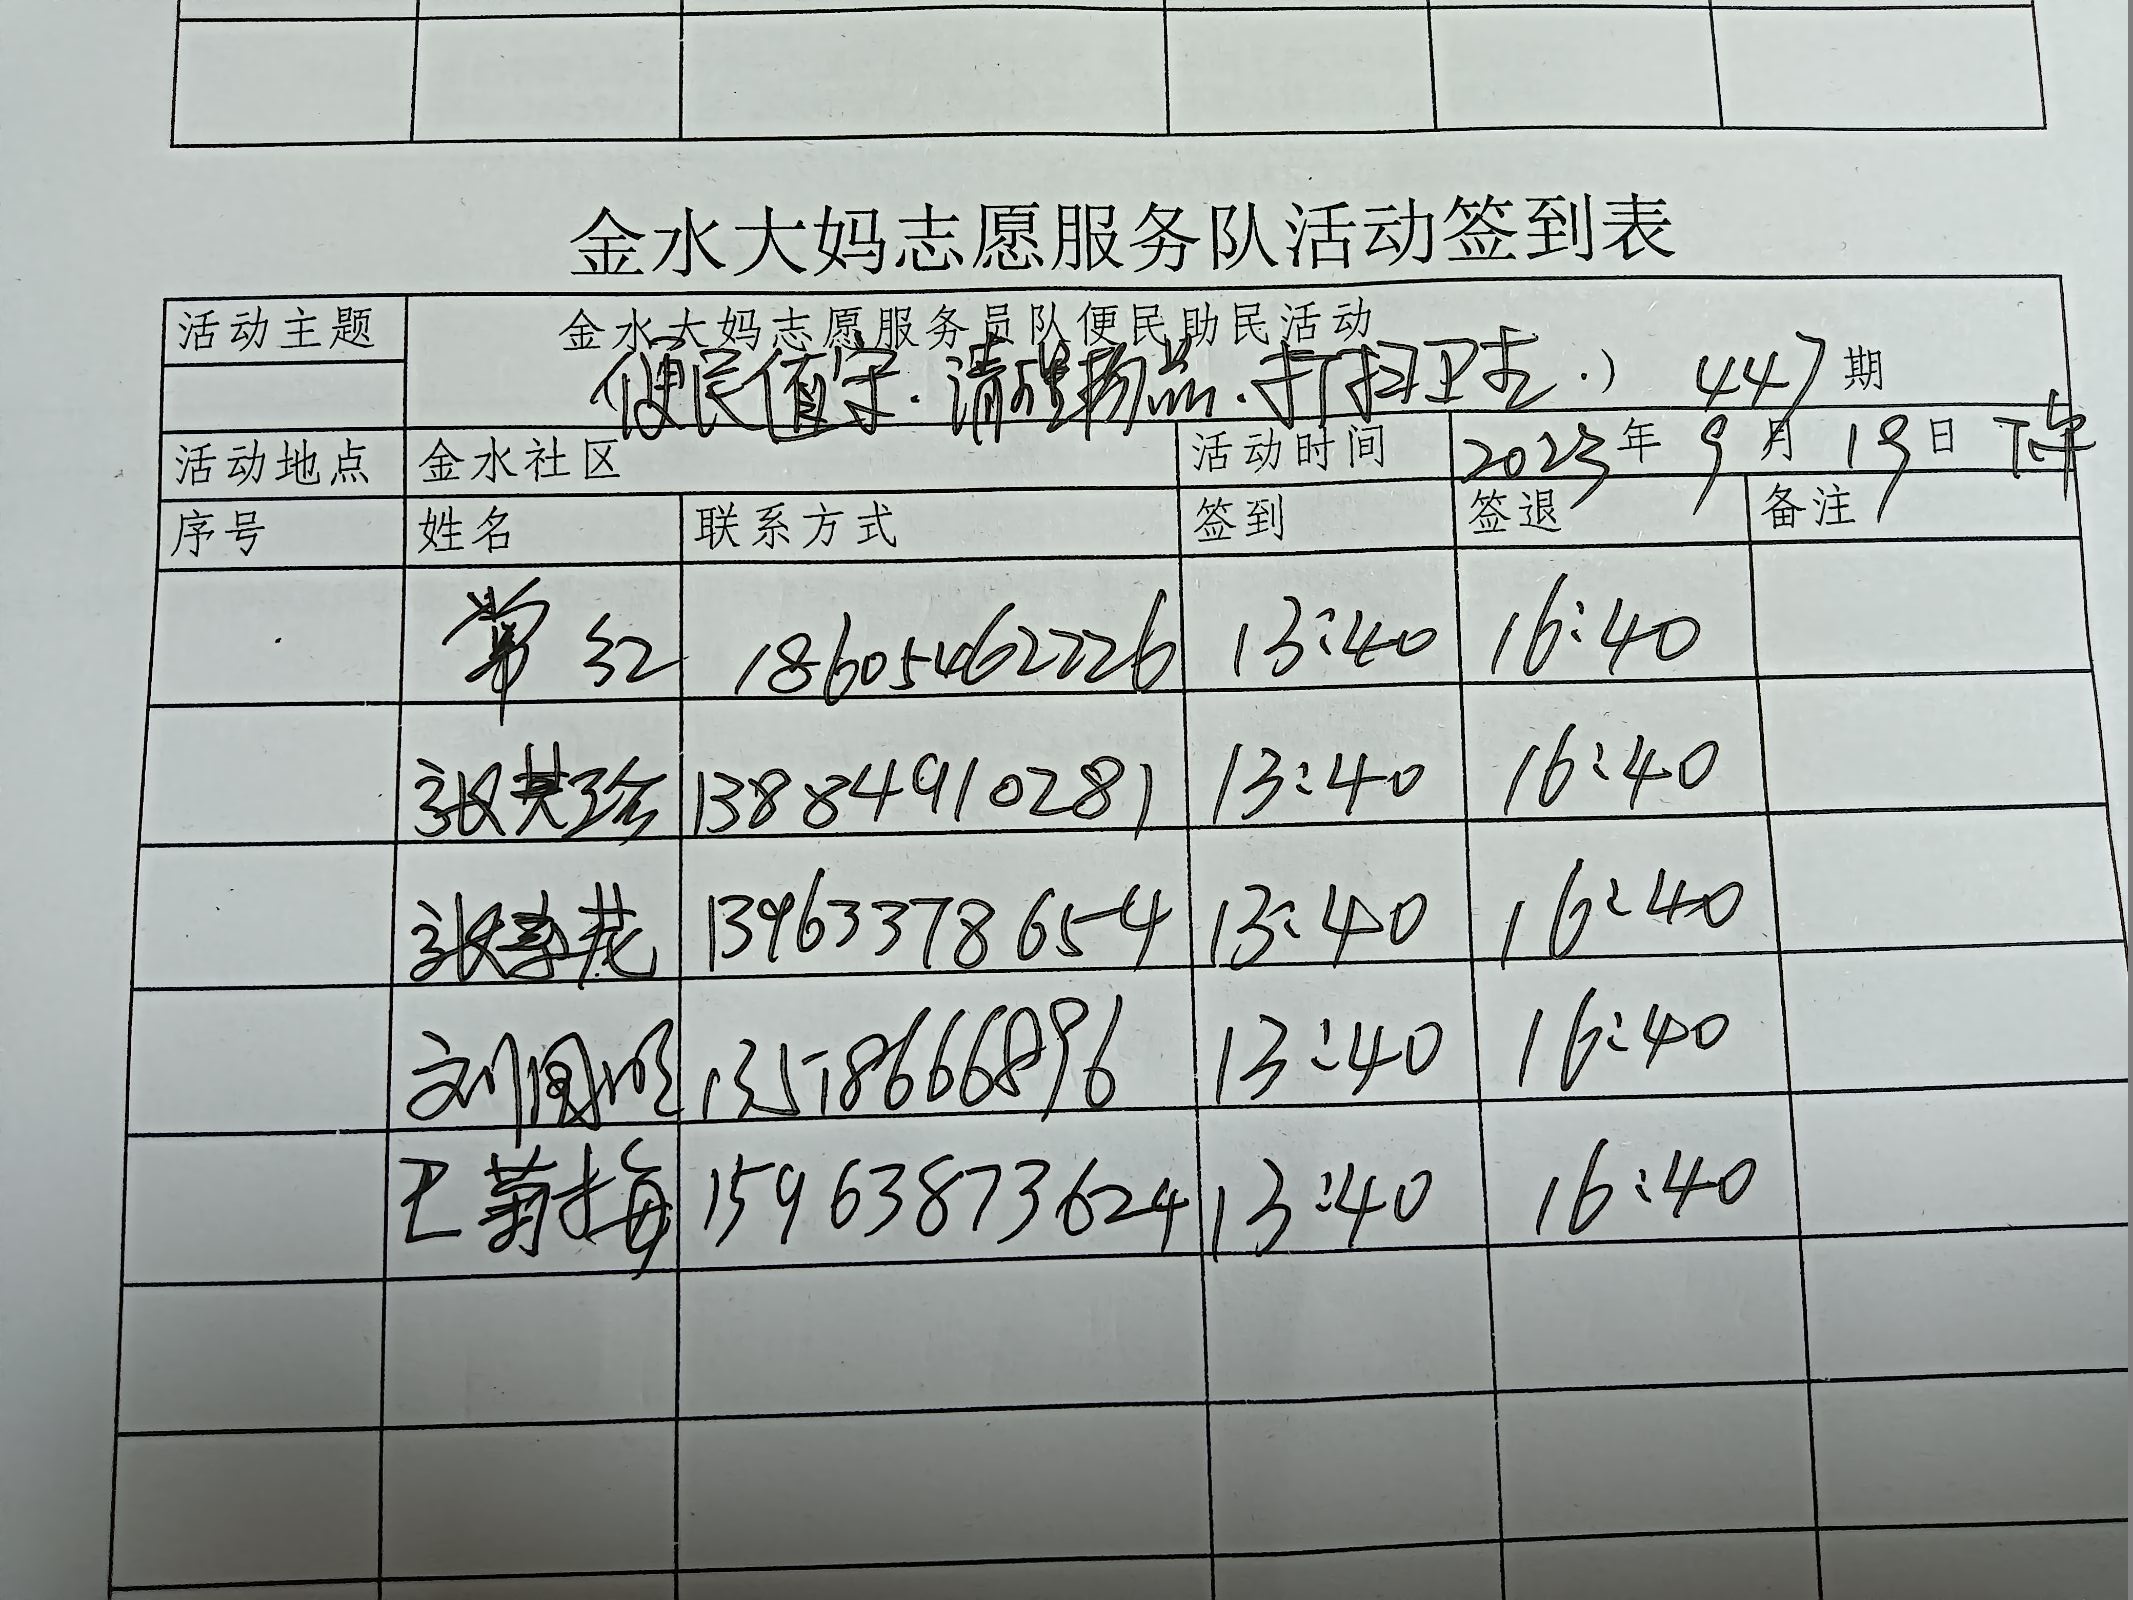 金水大妈志愿服务队活动签到表
活动主题 金水大妈志愿服务员队便民助民活动
便民值守.清理物品.打扫卫生.) 447期
活动地点 金水社区 活动时间 2023年9月19日 下午
序号 姓名 联系方式 签到 签退 备注
常红 18605462226 13:40 16:40
张英珍 13884910281 13:40 16:40
张秀花 13963378654 13:40 16:40
刘国明 13518666896 13:40 16:40
王菊梅 15963873624 13:40 16:40